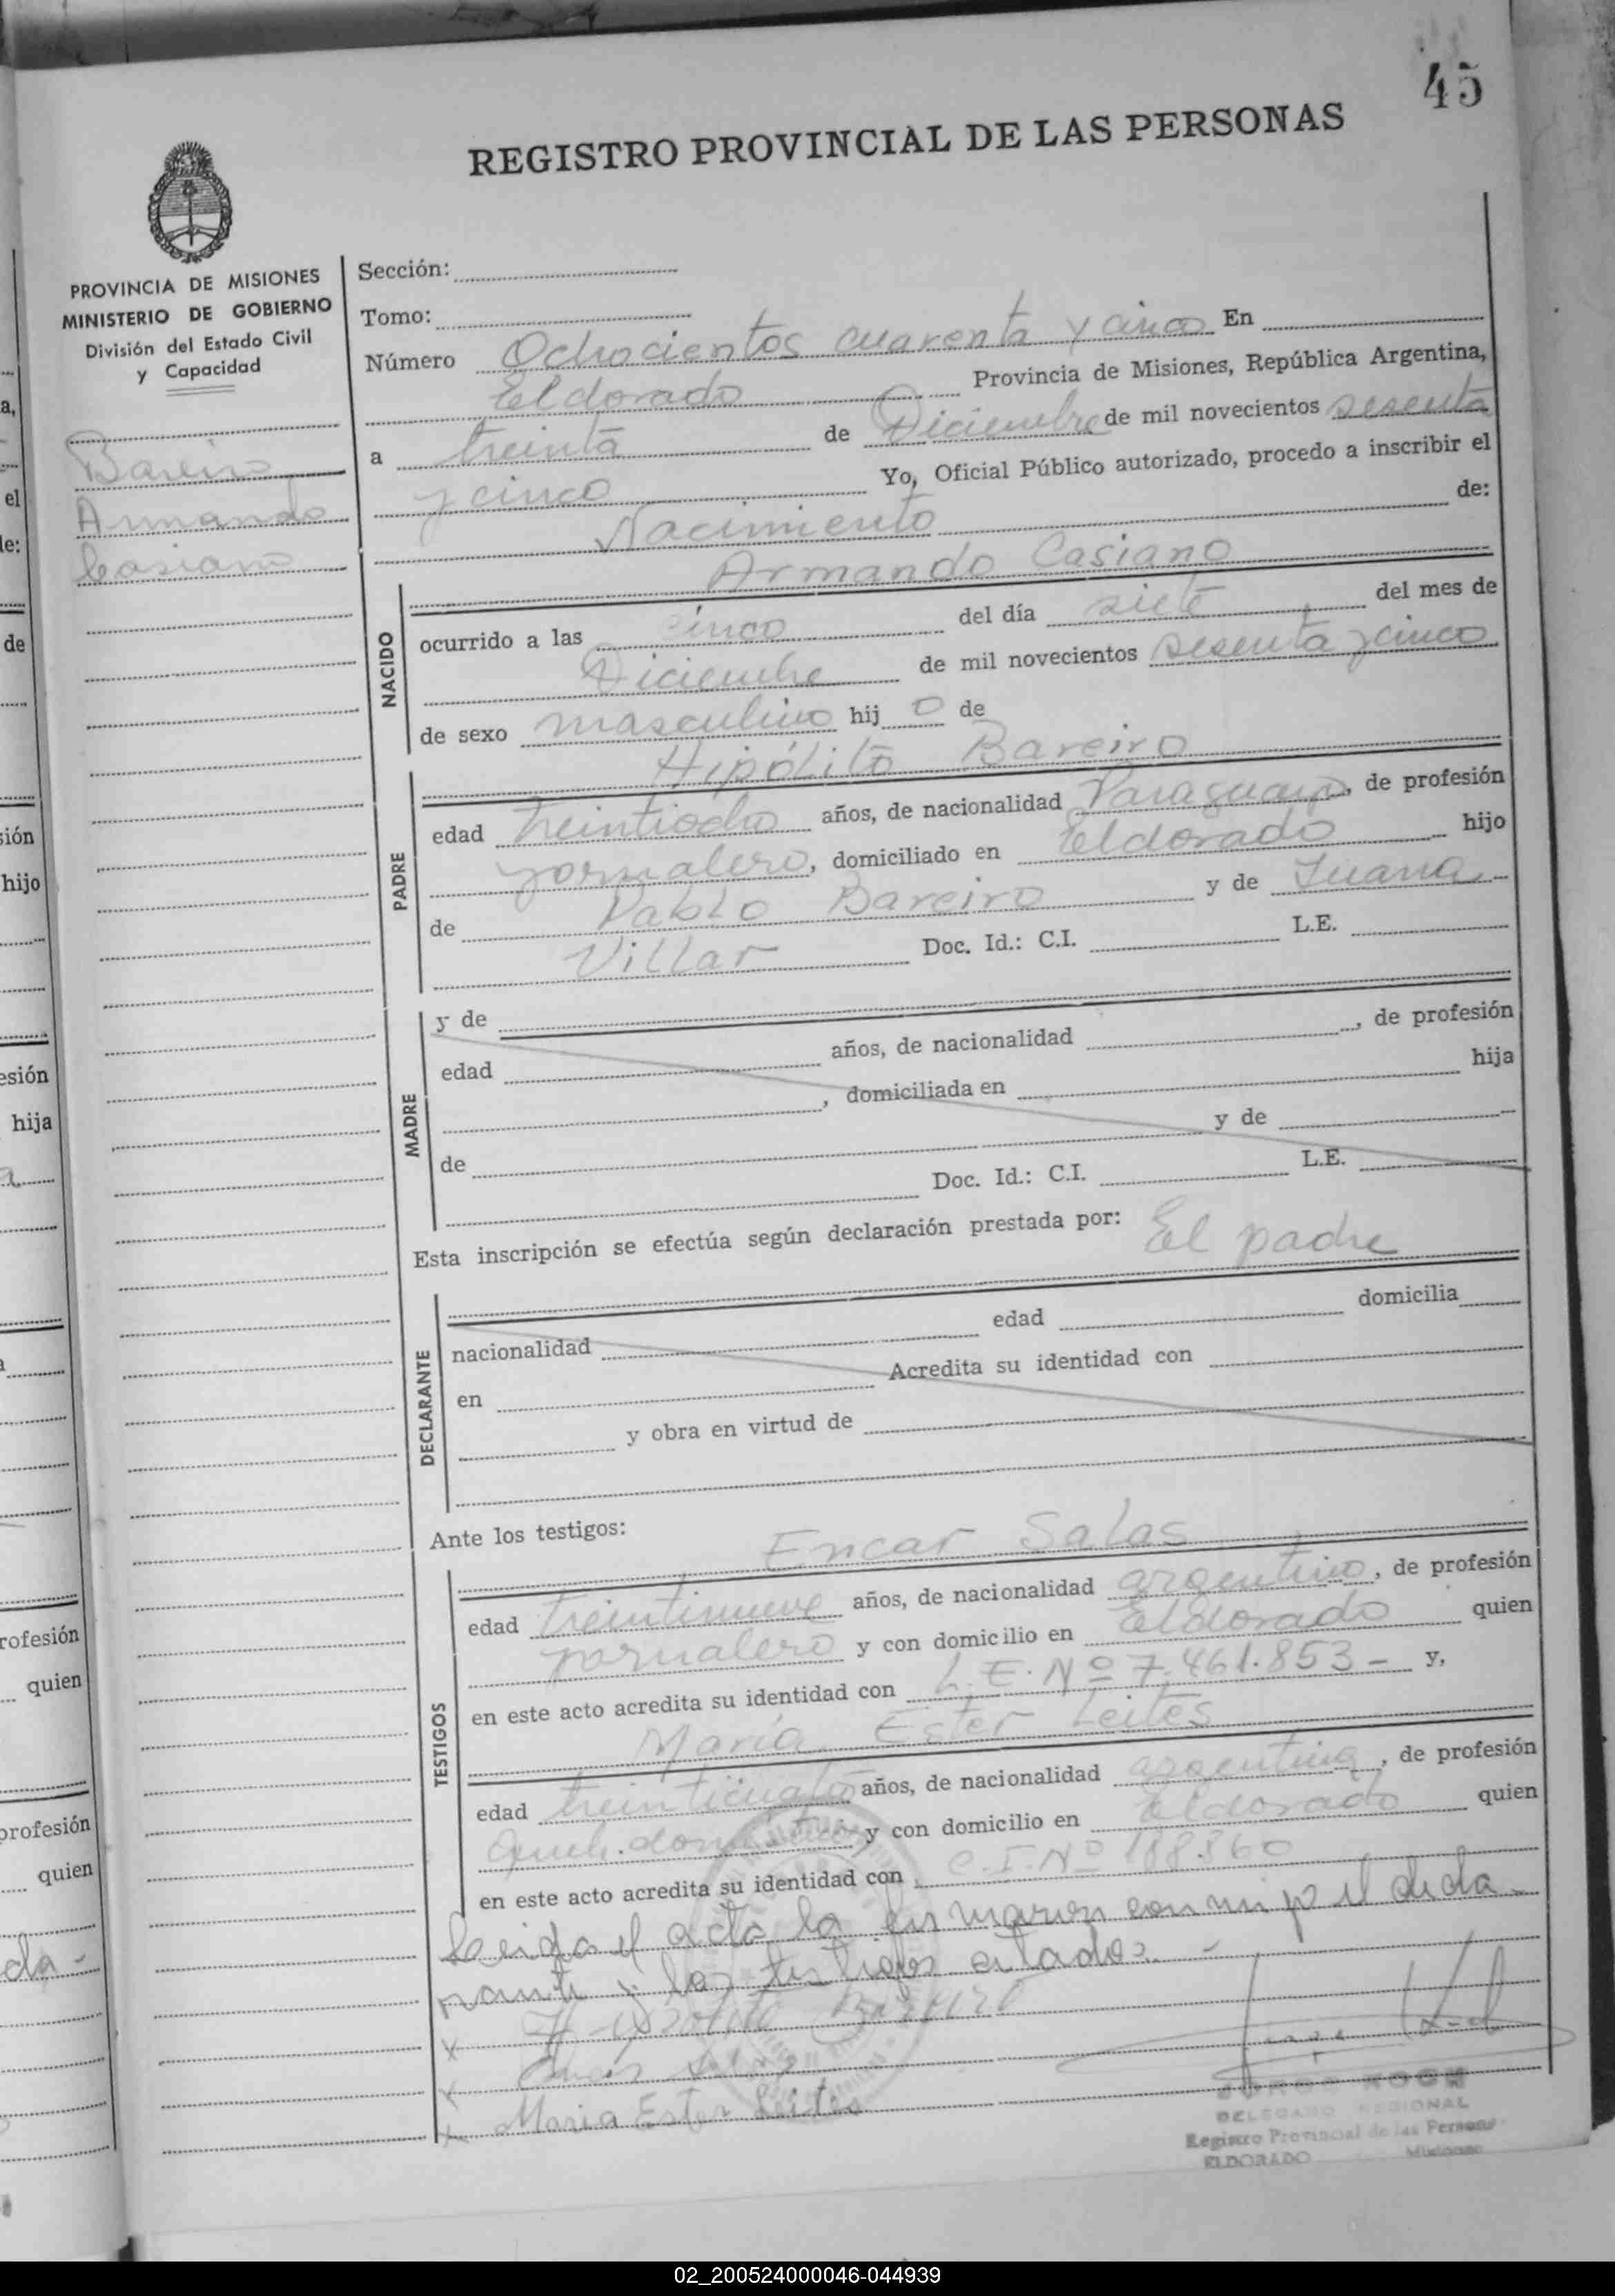 45
REGISTRO PROVINCIAL DE LAS PERSONAS
PROVINCIA DE MISIONES
MINISTERIO DE GOBIERNO
División del Estado Civil
y Capacidad
Bareiro
Armando
Casiano
Sección:
Tomo:
Número Ochocientos cuarenta y cinco En
Eldorado Provincia de Misiones, República Argentina,
a treinta de Diciembre de mil novecientos sesenta
y cinco Yo, Oficial Público autorizado, procedo a inscribir el
Nacimiento de:
NACIDO
Armando Casiano
ocurrido a las cinco del día siete del mes de
Diciembre de mil novecientos sesenta y cinco
de sexo masculino hij o de
PADRE
Hipólito Bareiro
edad treintiocho años, de nacionalidad Paraguayo, de profesión
jornalero, domiciliado en Eldorado hijo
de Pablo Bareiro y de Juana
Villar Doc. Id.: C.I. L.E.
MADRE
y de
edad años, de nacionalidad , de profesión
, domiciliada en hija
de y de
Doc. Id.: C.I. L.E.
Esta inscripción se efectúa según declaración prestada por: El padre
DECLARANTE
nacionalidad edad domicilia
en Acredita su identidad con
y obra en virtud de
Ante los testigos:
TESTIGOS
Encar Salas
edad treintinueve años, de nacionalidad argentino, de profesión
jornalero y con domicilio en Eldorado quien
en este acto acredita su identidad con L.E. Nº 7.461.853 - y,
María Ester Leites
edad treinticuatro años, de nacionalidad argentina, de profesión
y con domicilio en Eldorado quien
en este acto acredita su identidad con C.I. Nº 188.360
Leida el acta la firmaron conmigo el decla-
rante y los testigos citados. -
x Bareiro
x Salas
x Maria Ester Leites
JORGE KOCH
DELEGADO REGIONAL
Registro Provincial de las Personas
ELDORADO Misiones
02_200524000046-044939